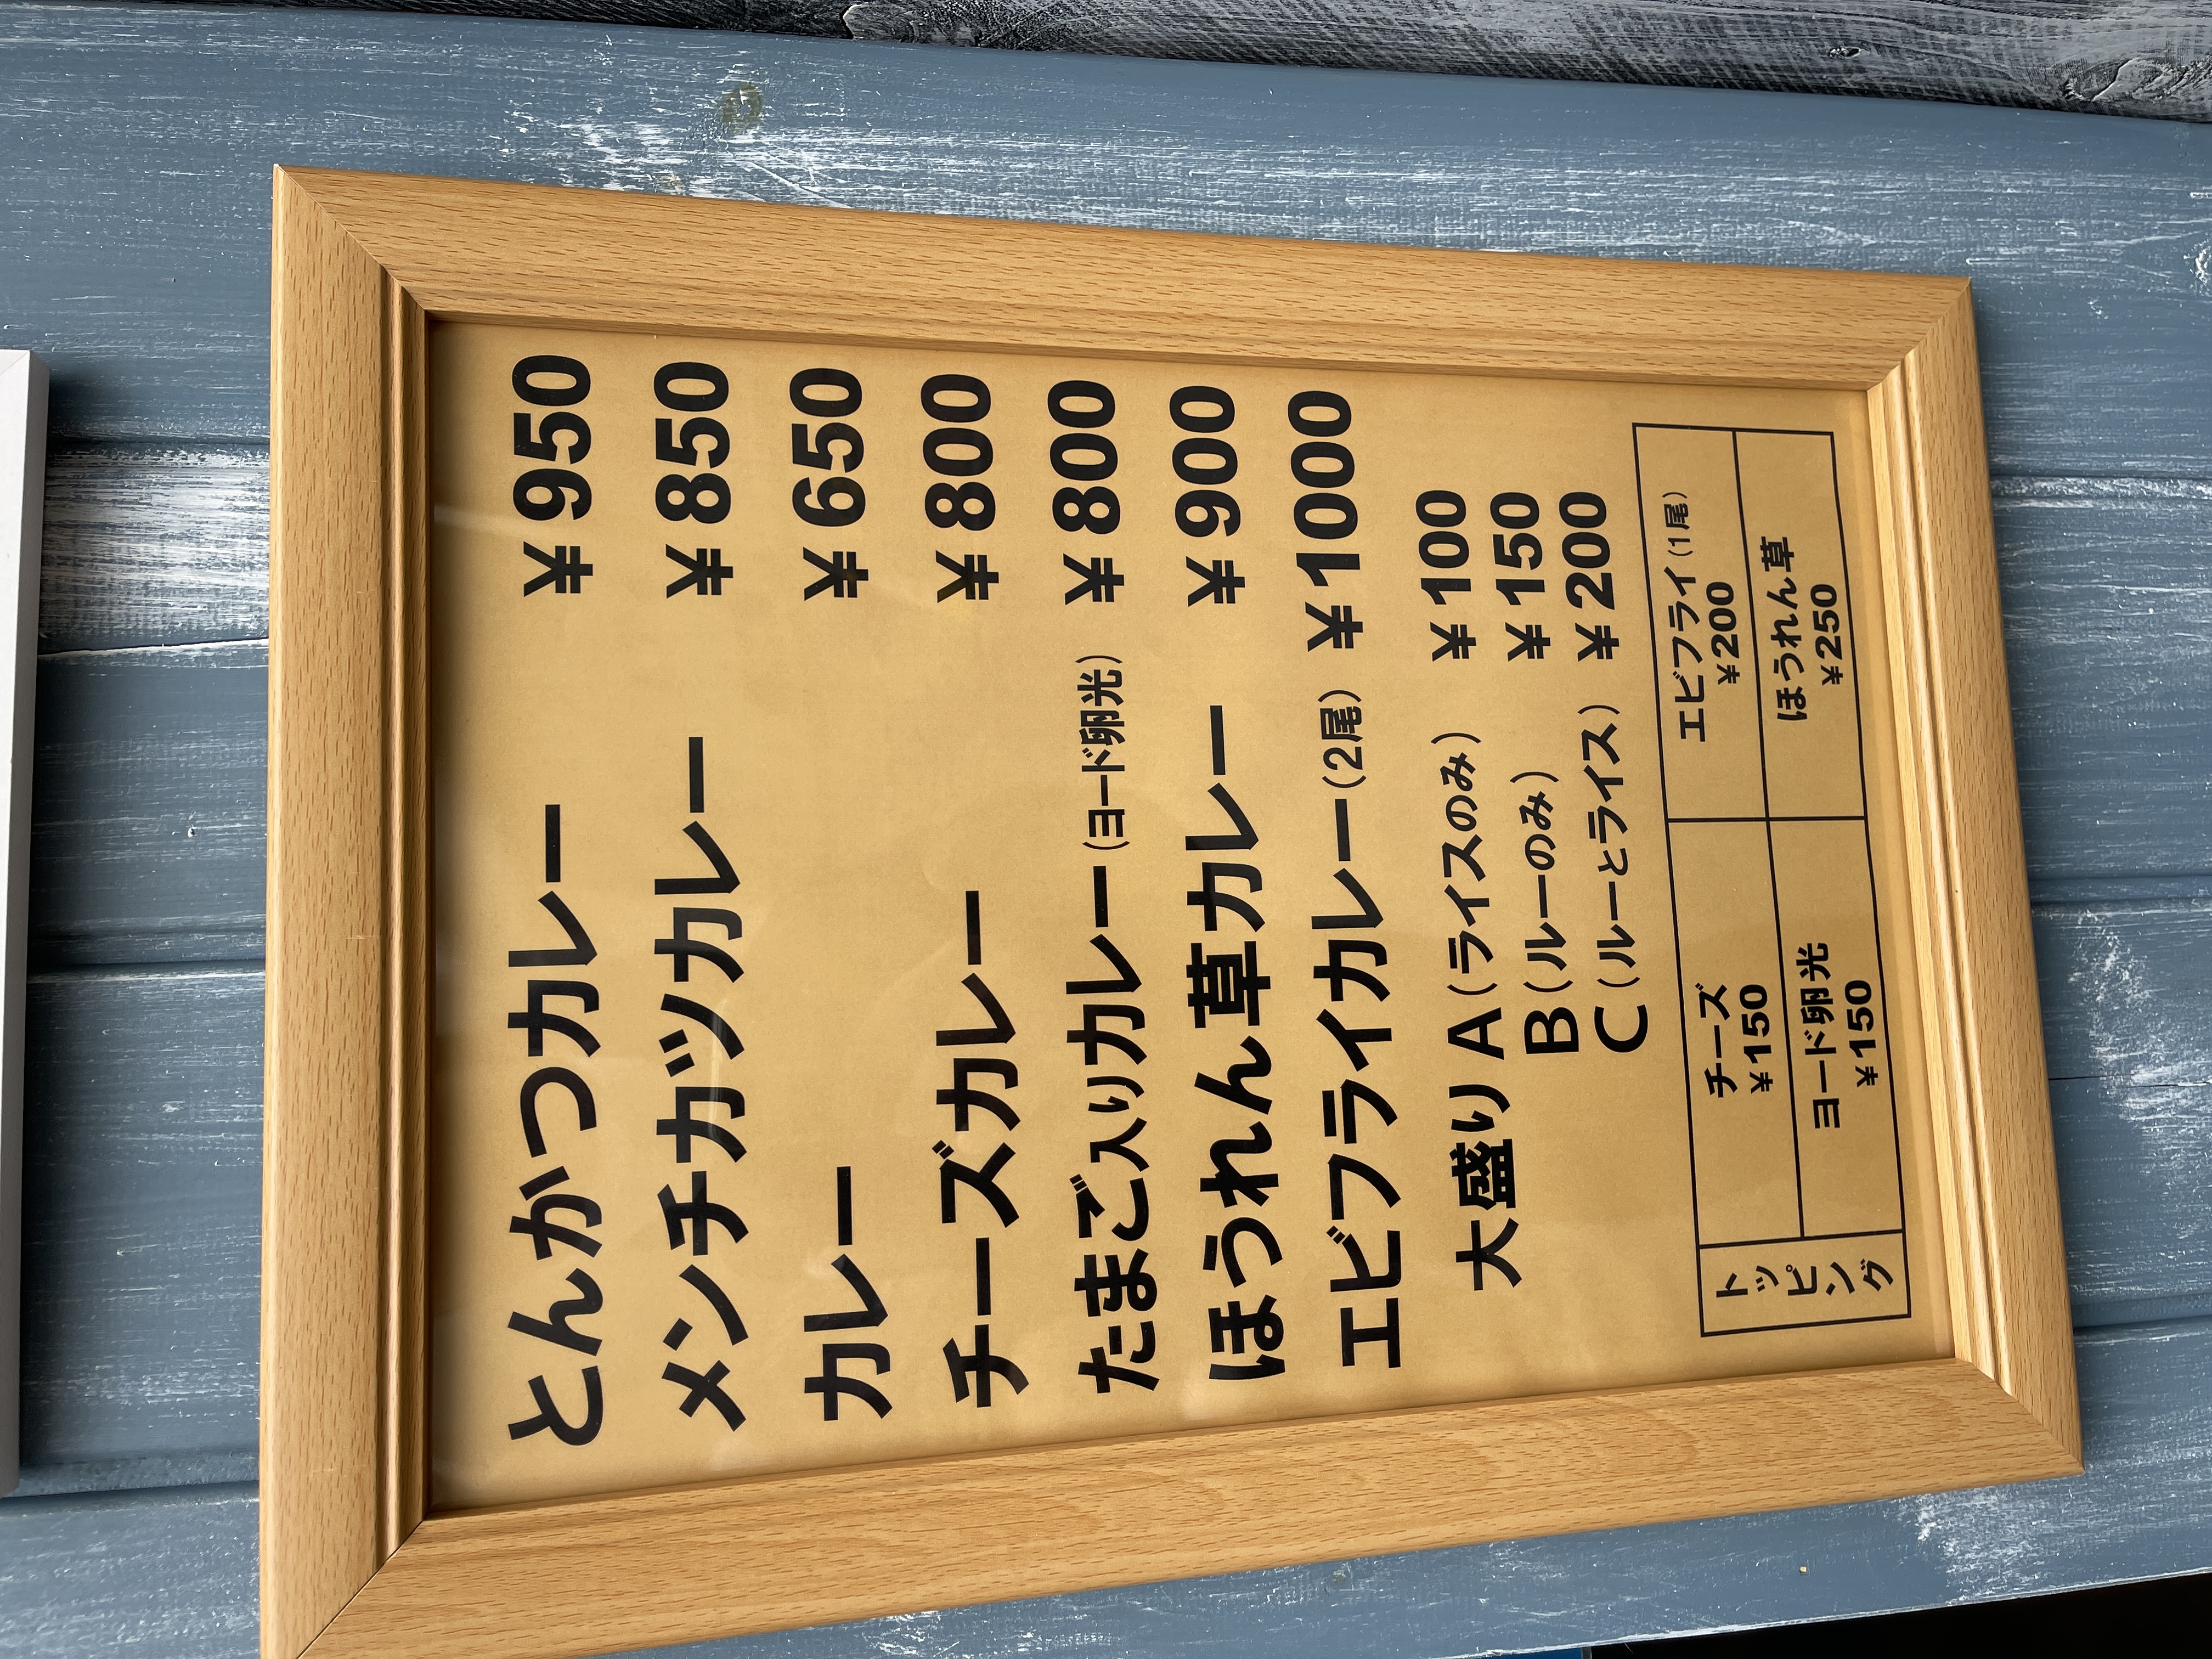 とんかつカレー ￥950
メンチカツカレー ￥850
カレー ￥650
チーズカレー ￥800
たまご入りカレー（ヨード卵光） ￥800
ほうれん草カレー ￥900
エビフライカレー（2尾） ￥1000
大盛り A（ライスのみ） ￥100
B（ルーのみ） ￥150
C（ルーとライス） ￥200
トッピング
チーズ
￥150
エビフライ（1尾）
￥200
ヨード卵光
￥150
ほうれん草
￥250